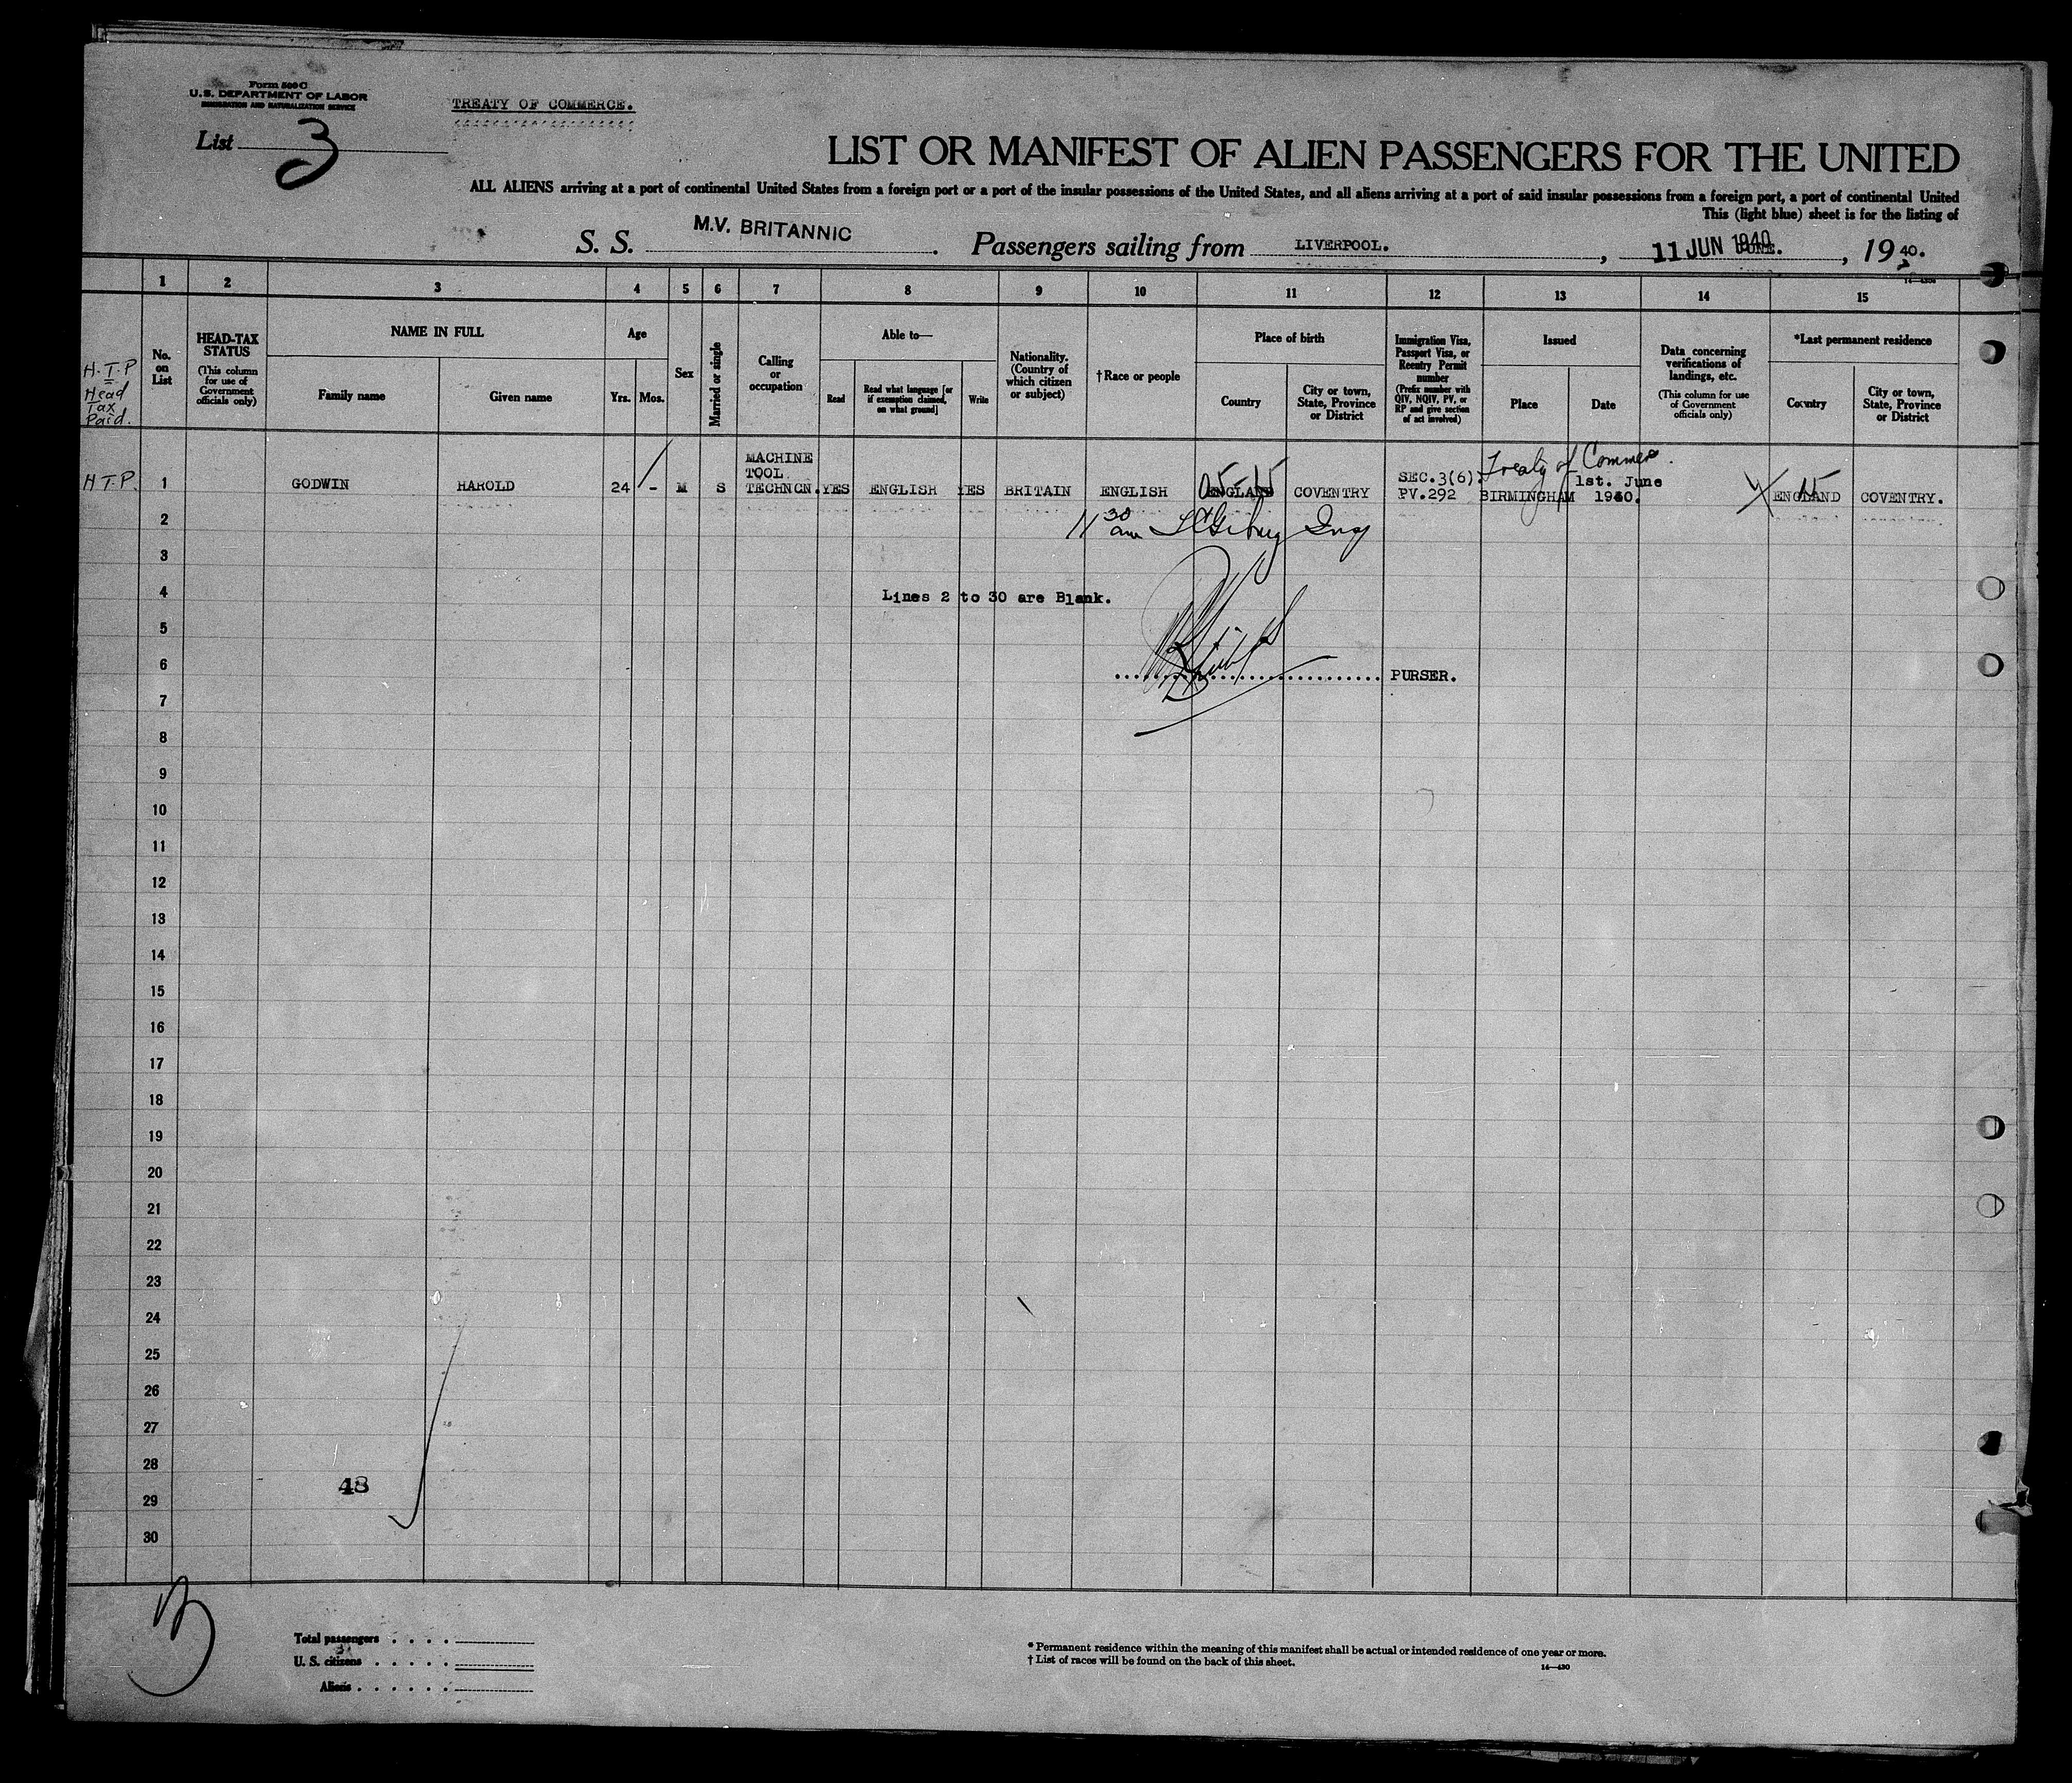 Form 500 C
U.S. DEPARTMENT OF LABOR
IMMIGRATION AND NATURALIZATION SERVICE
TREATY OF COMMERCE.
List 3
LIST OR MANIFEST OF ALIEN PASSENGERS FOR THE UNITED
ALL ALIENS arriving at a port of continental United States from a foreign port or a port of the insular possessions of the United States, and all aliens arriving at a port of said insular possessions from a foreign port, a port of continental United
This (light blue) sheet is for the listing of
S. S. M.V. BRITANNIC. Passengers sailing from LIVERPOOL. , 11 JUN 1940 JUNE. , 19 40.
1 2 3 4 5 6 7 8 9 10 11 12 13 14 15
H.T.P = Head Tax Paid.
No. on List
HEAD-TAX STATUS
(This column for use of Government officials only)
NAME IN FULL
Family name
Given name
Age
Yrs.
Mos.
Sex
Married or single
Calling or occupation
Able to—
Read
Read what language [or if exemption claimed, on what ground]
Write
Nationality. (Country of which citizen or subject)
†Race or people
Place of birth
Country
City or town, State, Province or District
Immigration Visa, Passport Visa, or Reentry Permit number
(Prefix number with QIV, NQIV, PV, or RP and give section of act involved)
Issued
Place
Date
Data concerning verifications of landings, etc.
(This column for use of Government officials only)
*Last permanent residence
Country
City or town, State, Province or District
HTP. 1 GODWIN HAROLD 24 - M S MACHINE TOOL TECHNCN. YES ENGLISH YES BRITAIN ENGLISH ENGLAND COVENTRY SEC.3(6). PV.292 Treaty of Commerce. BIRMINGHAM 1st. June 1940. ENGLAND COVENTRY.
2 11 30 am
3
4 Lines 2 to 30 are Blank.
5
6 PURSER.
7
8
9
10
11
12
13
14
15
16
17
18
19
20
21
22
23
24
25
26
27
28
48
29
30
Total passengers
U. S. citizens
Aliens
* Permanent residence within the meaning of this manifest shall be actual or intended residence of one year or more.
† List of races will be found on the back of this sheet.
14—430